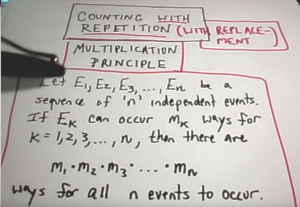 COUNTING WITH
REPETITION (WITH REPLACE-
MENT)
MULTIPLICATION
PRINCIPLE
Let E1, E2, E3, ..., En be a
sequence of 'n' independent events.
If EK can occur mK ways for
K = 1, 2, 3, ..., n, then there are
m1 · m2 · m3 · ... · mn
ways for all n events to occur.